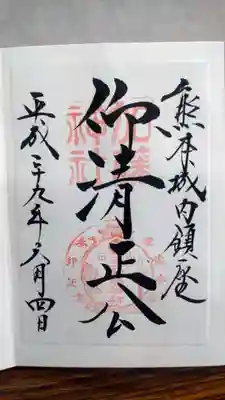 熊本城内鎮座
仰清正公
加藤神社
平成二十九年六月四日